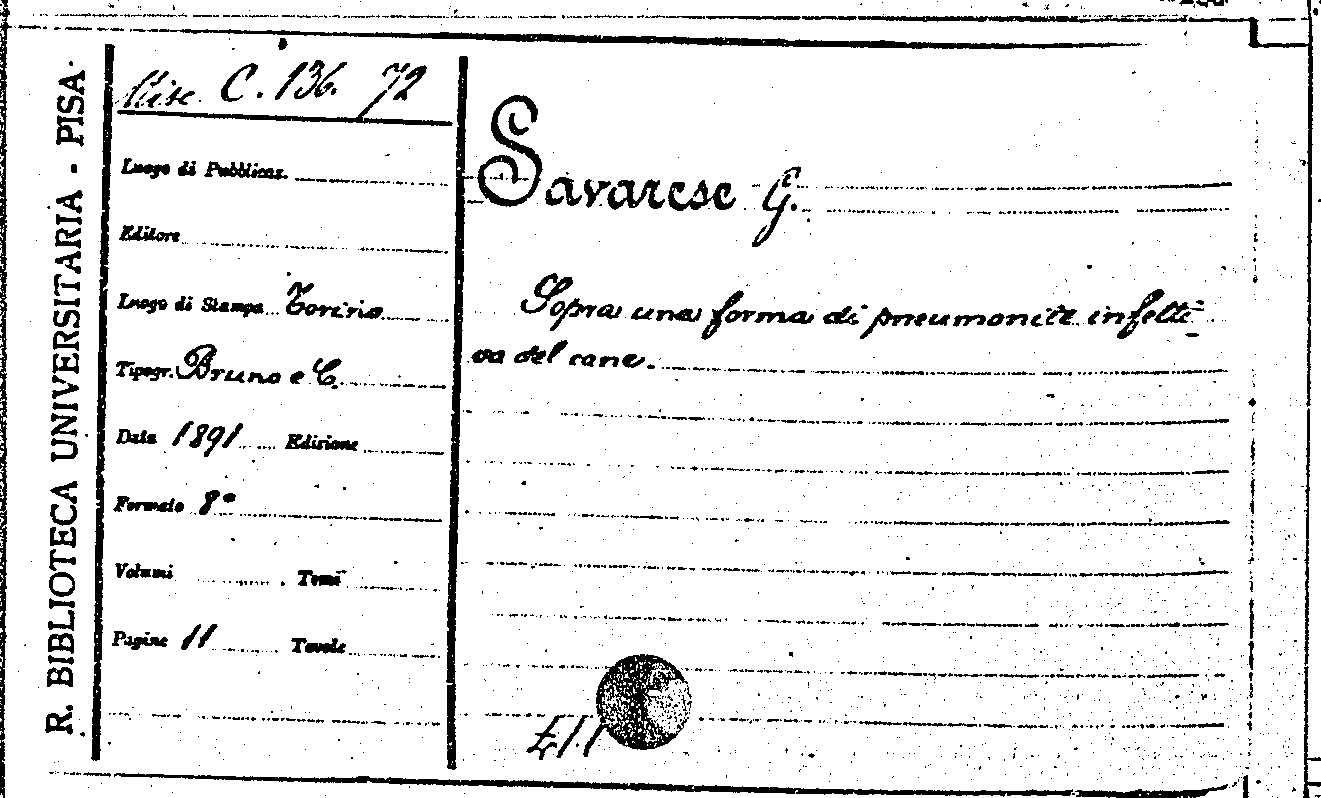 R. BIBLIOTECA UNIVERSITARIA - PISA
Misc. C. 136. 72
Luogo di Pubblicaz.
Editore
Luogo di Stampa Torino
Tipogr. Bruno e C.
Data 1891 Edizione
Formato 8°
Volumi Tomi
Pagine 11 Tavole
Savarese G.
Sopra una forma di pneumonite infetti-
va del cane.